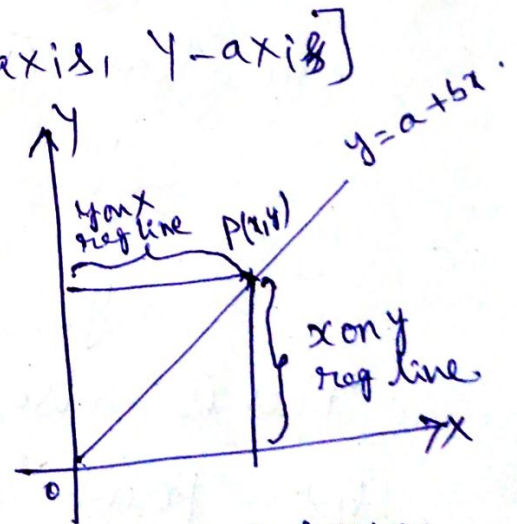 axis, Y-axis]
Y
y=a+bx.
y on x
reg line
P(x,y)
x on y
reg line.
X
0